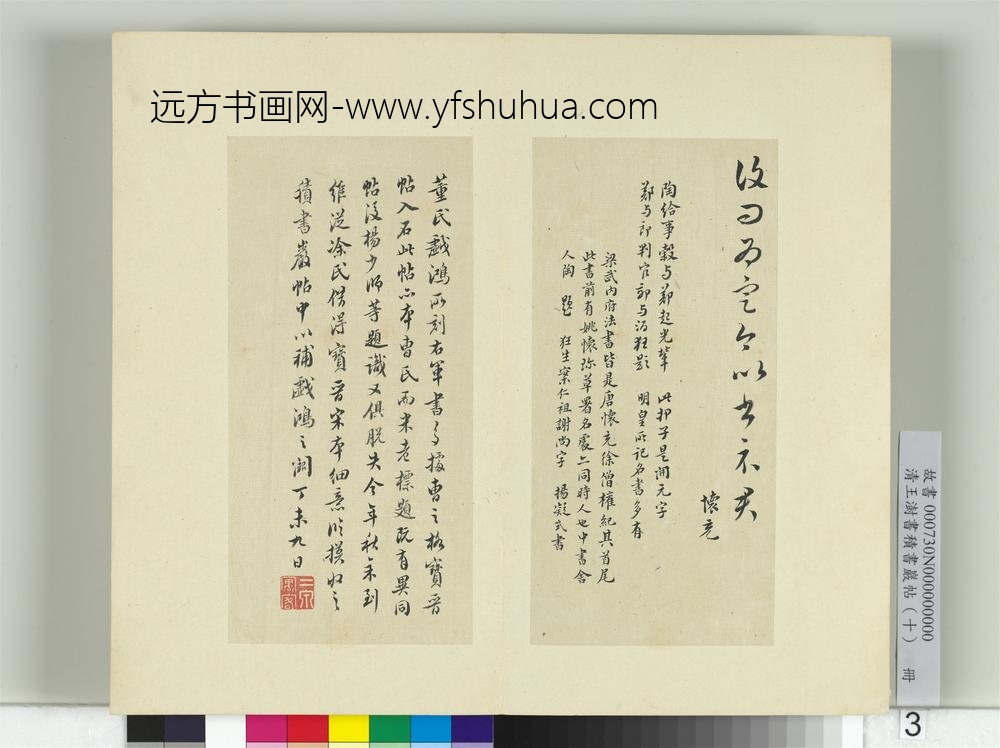 远方书画网-www.yfshuhua.com
陶给事穀与郑起光辈 此押子是开元字
郑与 判官 与 明皇所记名书多有
梁武内府法書皆是唐懷充徐僧權紀其首尾
此書前有姚懷珍草署名處上同時人也中書舍
人陶 題 狂生案仁祖謝尚字 楊凝式書
懷充
董氏戲鴻所刻右軍書多據曹之格寶晉
帖入石此帖亦本曹氏而米老標題既有異同
帖後楊少師等題識又俱脱失今年秋来到
維從涂氏借得寶晉宋本細意臨摸收之
積書巖帖中以補戲鴻之闕丁未九日
故書000730N000000000
清王澍書積書巖帖(十) 冊
3